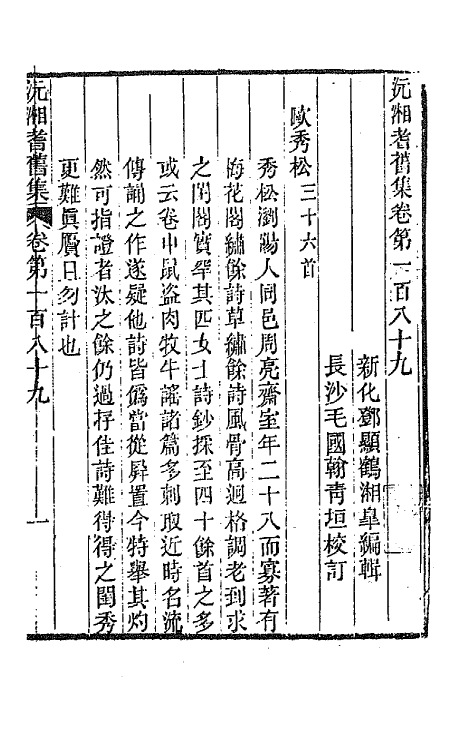 沅湘耆舊集卷第一百八十九
新化鄧顯鶴湘皋編輯
長沙毛國翰靑垣校訂
歐秀松三十六首
秀松瀏陽人同邑周亮齋室年二十八而寡著有
梅花閣繡餘詩草繡餘詩風骨高迥格調老到求
之閨閣實罕其匹女士詩鈔採至四十餘首之多
或云卷中鼠盜肉牧牛謠諸篇多刺取近時名流
傳誦之作遂疑他詩皆僞當從屛置今特舉其灼
然可指證者汰之餘仍過存佳詩難得得之閨秀
更難眞贋曰勿計也
沅湘耆舊集
卷第一百八十九
一